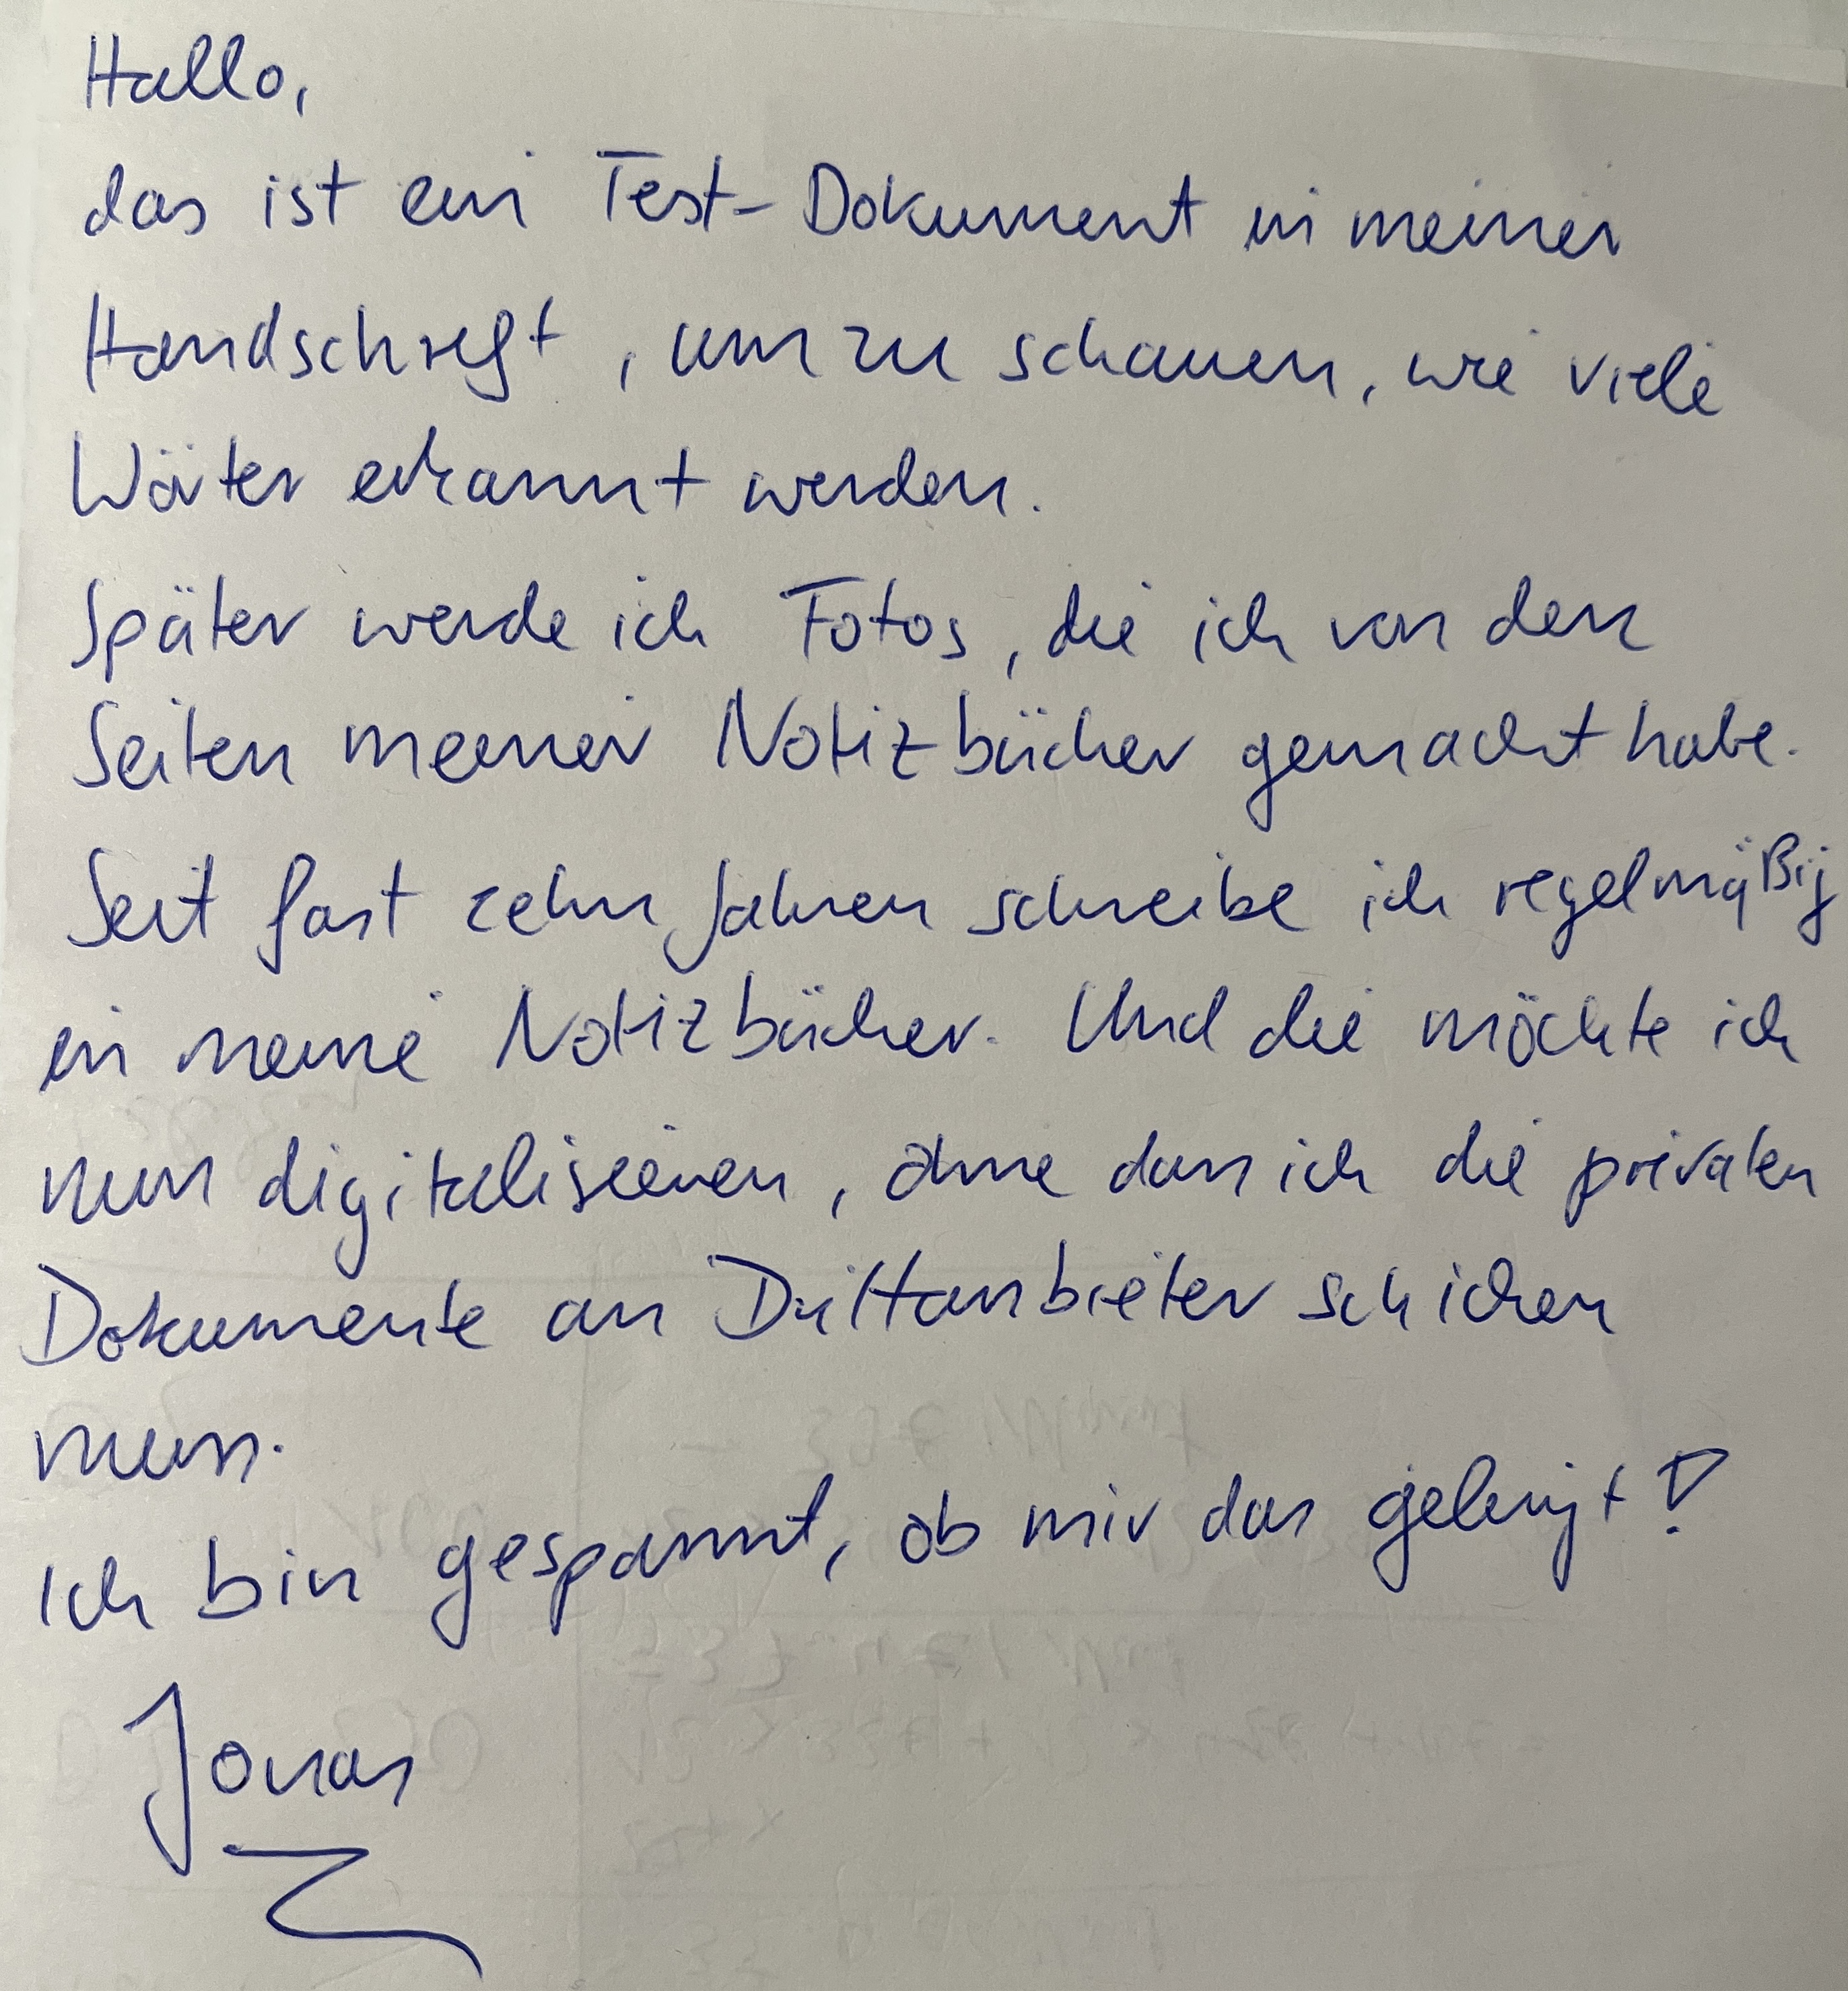 Hallo,
das ist ein Test-Dokument in meiner
Handschrift, um zu schauen, wie viele
Wörter erkannt werden.
Später werde ich Fotos, die ich von den
Seiten meiner Notizbücher gemacht habe.
Seit fast zehn Jahren schreibe ich regelmäßig
in meine Notizbücher. Und die möchte ich
nun digitalisieren, ohne dass ich die privaten
Dokumente an Drittanbieter schicken
muss.
Ich bin gespannt, ob mir das gelingt!
Jonas